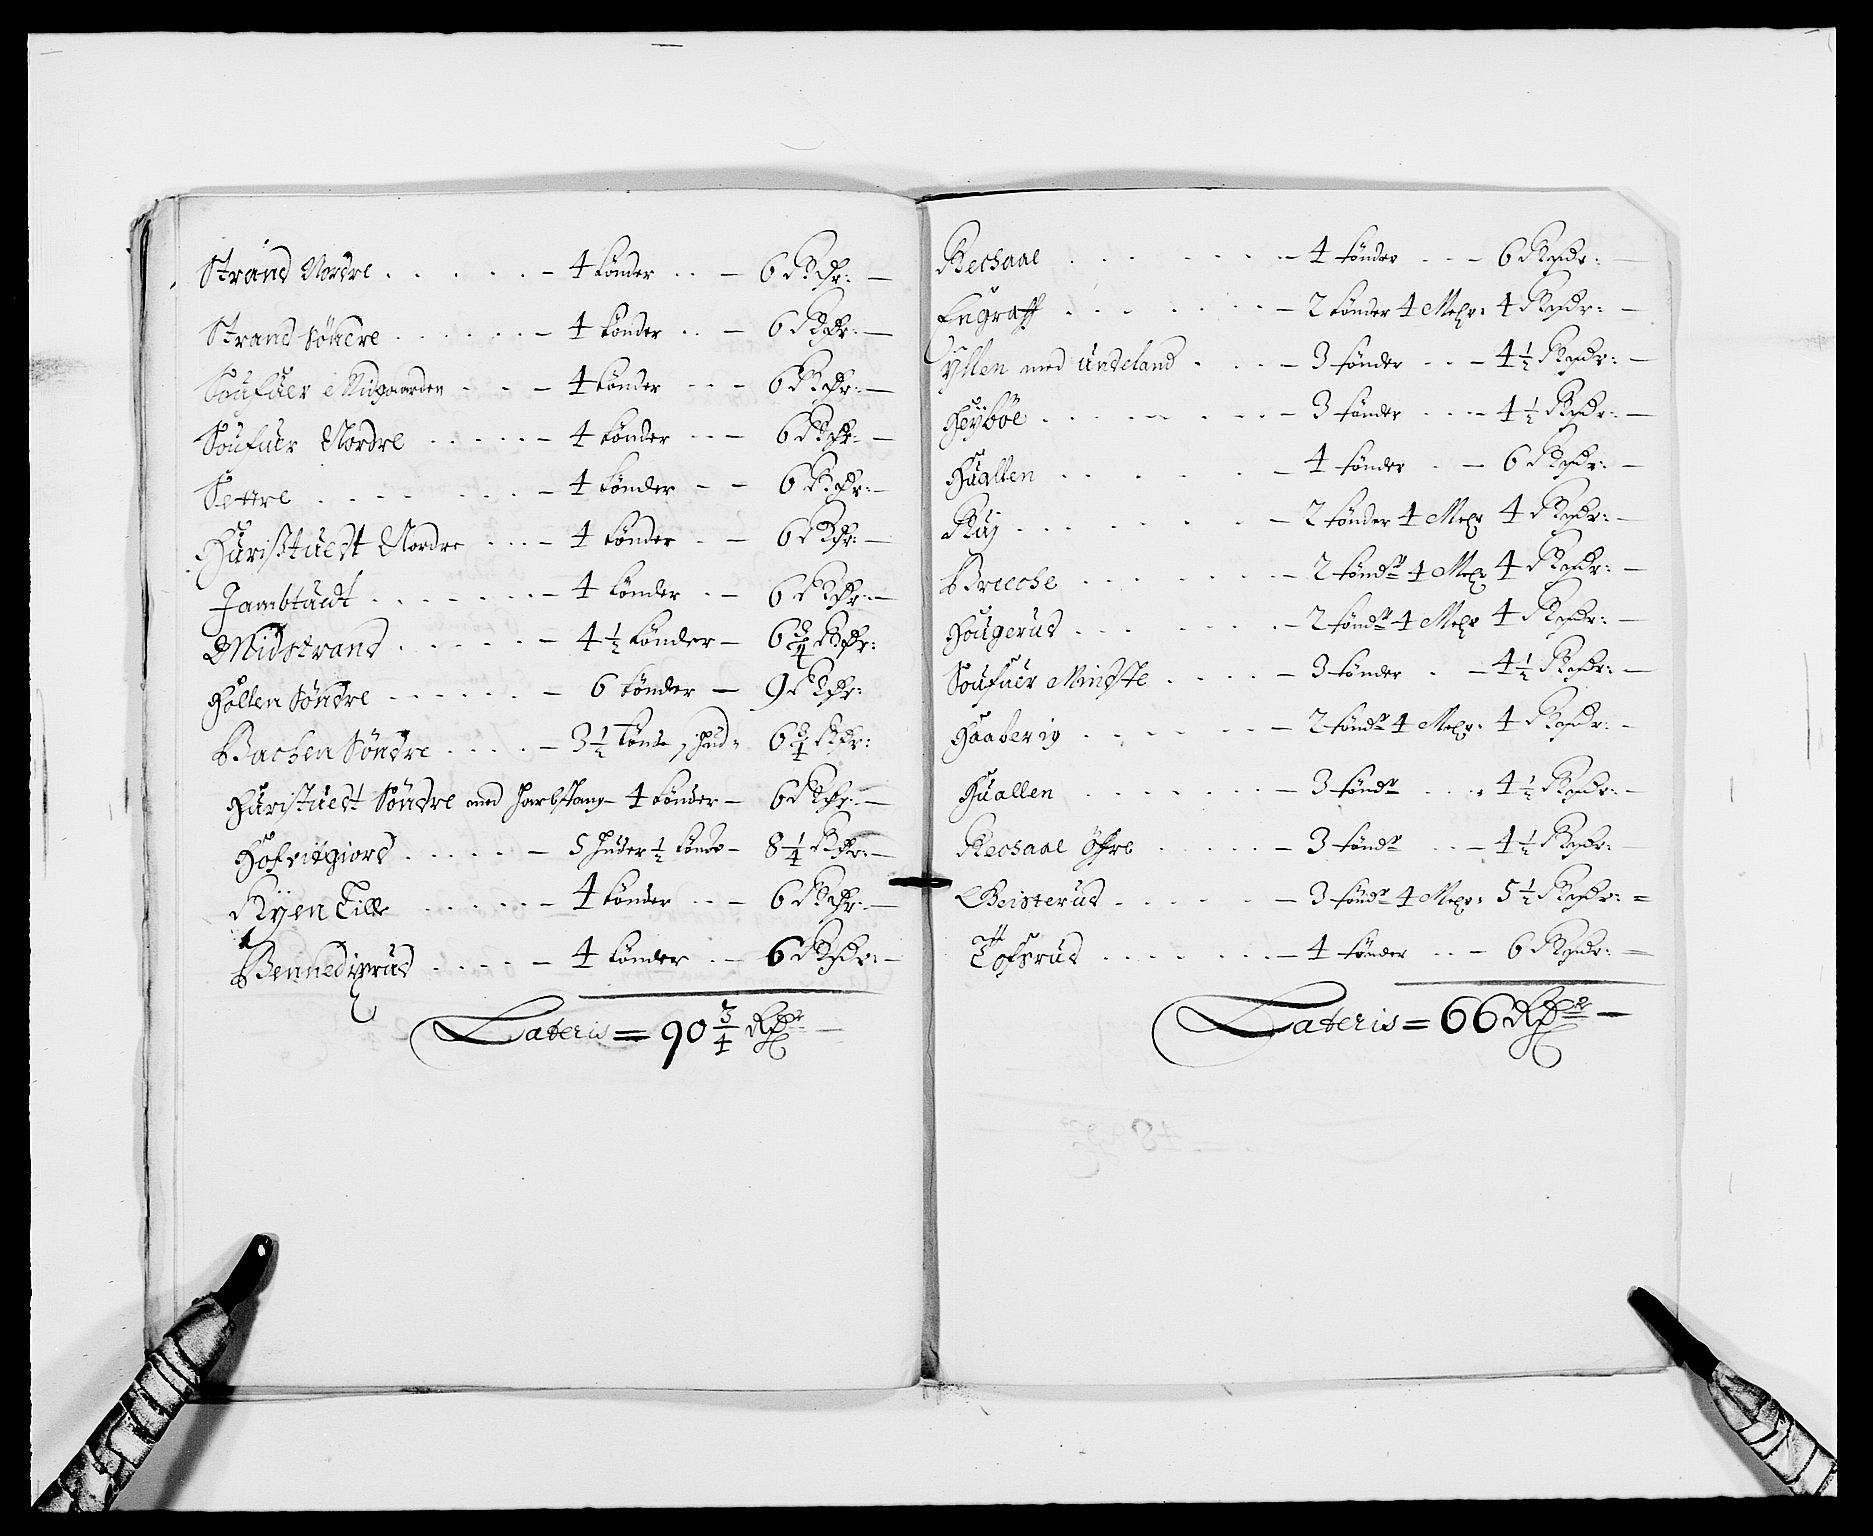 Strand Nordre . . . . . – 4 tønder . . – 6 Rdr: –
Strand Söndre . . . . . – 4 tønder . . – 6 Rdr: –
Soufuer Midgaarden . . – 4 tønder . . – 6 Rdr: –
Soufuer Nordre . . . . – 4 tønder . . – 6 Rdr: –
Settre . . . . . . – 4 tønder – – 6 Rdr: –
Huristuedt Nordre . . . – 4 tønder . – 6 Rdr: –
Jambtuedt . . . . . . – 4 tønder . – 6 Rdr: –
Midstrand . . . . . – 4 1/2 tønder – 6 3/4 Rdr:
Hollen Söndre . . . . . – 6 tønder – 9 Rdr:
Bachen Söndre . . . . – 3 1/2 tønde, 1 hud – 6 3/4 Rdr:
Huristuedt Söndre med – 4 tønder – 6 Rdr: –
Hofvitgiord . . . . . – 5 huder 1/2 tønde – 8 1/4 Rdr: –
Ryen Lille . . . . . – 4 tønder . . – 6 Rdr: –
Bennediprud . . . . – 4 tønder . . – 6 Rdr: –
Lateris = 90 3/4 Rdr –
Bechaal . . . . . . . – 4 tønder . . – 6 Rdr: –
Engraff . . . . . . – 2 tønder 4 Melpr: 4 Rdr: –
Yllen med undeland . . . – 3 tønder . . – 4 1/2 Rdr: –
Heÿböe . . . . . . – 3 tønder . . – 4 1/2 Rdr: –
Huallen . . . . . . – 4 tønder . – 6 Rdr: –
Ruj . . . . . . . – 2 tønder 4 Melpr 4 Rdr: –
Brecche . . . . . . – 2 töndr 4 Melpr 4 Rdr: –
Hougerud . . . . . . – 2 töndr 4 Melpr 4 Rdr: –
Soufuer Mindste . . . . – 3 tønder . – 4 1/2 Rdr: –
Haaberig . . . . . . – 2 töndr 4 Melpr: 4 Rdr: –
Huallen . . . . . . – 3 töndr . . . 4 1/2 Rdr: –
Bechaal Öfre . . . . . – 3 töndr . . – 4 1/2 Rdr: –
Geisterud . . . . . – 3 töndr 4 Melpr: 5 1/2 Rdr: =
Tofsrud . . . . . . – 4 tønder . . – 6 Rdr: =
Lateris = 66 Rdr –